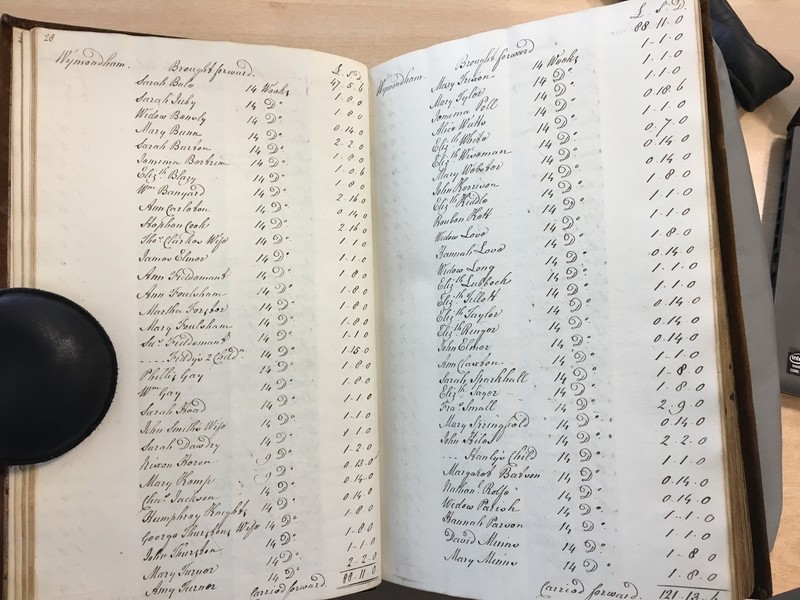 28
Wymondham. Brought forward. £ S D
47-5-6
Sarah Bale 14 Weeks 1-8-0
Sarah Juby 14 Do
Widow Bonely 14 Do 0-14-0
Mary Bunn 14 Do 2-2-0
Sarah Burton 14 Do 1-8-0
Jemima Bartrim 14 Do 1-0-6
Elizth Blazy 14 Do 1-8-0
Wm Banyard 14 Do 2-16-0
Ann Carleton 14 Do 0-14-0
Stephen Cook 14 Do 2-16-0
Thos Clarkes Wife 14 Do 1-1-0
James Elmer 14 Do 1-1-0
Ann Feildsmant 14 Do 1-8-0
Ann Foulsham 14 Do 1-8-0
Martha Forster 14 Do 1-8-0
Mary Foulsham 14 Do 1-8-0
Sus Fieldsmant 14 Do 1-1-0
---- Fredys 2 Childn 14 Do 1-15-0
Phillis Gay 14 Do 1-8-0
Wm Gay 14 Do 1-8-0
Sarah Hoad 14 Do 1-1-0
John Smiths Wife 14 Do 1-1-0
Sarah Dawdry 14 Do 1-1-0
Nixon Heron 9 Do 1-2-0
Mary Kemp 9 Do 0-13-0
Chas Jackson 14 Do 0-14-0
Humphrey Knights 14 Do 0-14-0
George Thurstons Wife 14 Do 1-8-0
John Thurston 14 Do 1-8-0
Mary Turner 14 Do 1-1-0
Amy Turner 14 Do 2-2-0
Carried forward. 88-11-0
£ S D
Wymondham. Brought forward 88-11-0
Mary Frixon 14 Weeks 1-1-0
Mary Tylor 14 Do 1-1-0
Jemima Pell 14 Do 1-1-0
Alice Waite 14 Do 0-18-6
Elizth White 14 Do 1-1-0
Elizth Wiseman 14 Do 0-7-0
Mary Webster 14 Do 0-14-0
John Harrison 14 Do 0-14-0
Elizth Kiddle 14 Do 1-8-0
Reuben Kett 14 Do 1-1-0
Widow Love 14 Do 1-1-0
Hannah Love 14 Do 1-8-0
Widow Long 14 Do 0-14-0
Elizth Lubbock 14 Do 1-1-0
Elizth Jillett 14 Do 0-14-0
Elizth Taylor 14 Do 1-1-0
Elizth Ringer 14 Do 0-14-0
John Elmer 14 Do 0-14-0
Ann Claxton 14 Do 1-1-0
Sarah Sparkhall 14 Do 1-8-0
Elizth Sayer 14 Do 1-8-0
Fras Small 14 Do 2-9-0
Mary Springfold 14 Do 0-14-0
John 14 Do 2-2-0
---- Hanlys Child 14 Do 1-1-0
Margaret Barson 14 Do 0-14-0
Nathanl Rolfe 14 Do 0-14-0
Widow Parish 14 Do 1-1-0
Hannah Parson 14 Do 1-1-0
David Minns 14 Do 1-8-0
Mary Minns 14 Do 1-8-0
Carried forward. 121-13-6